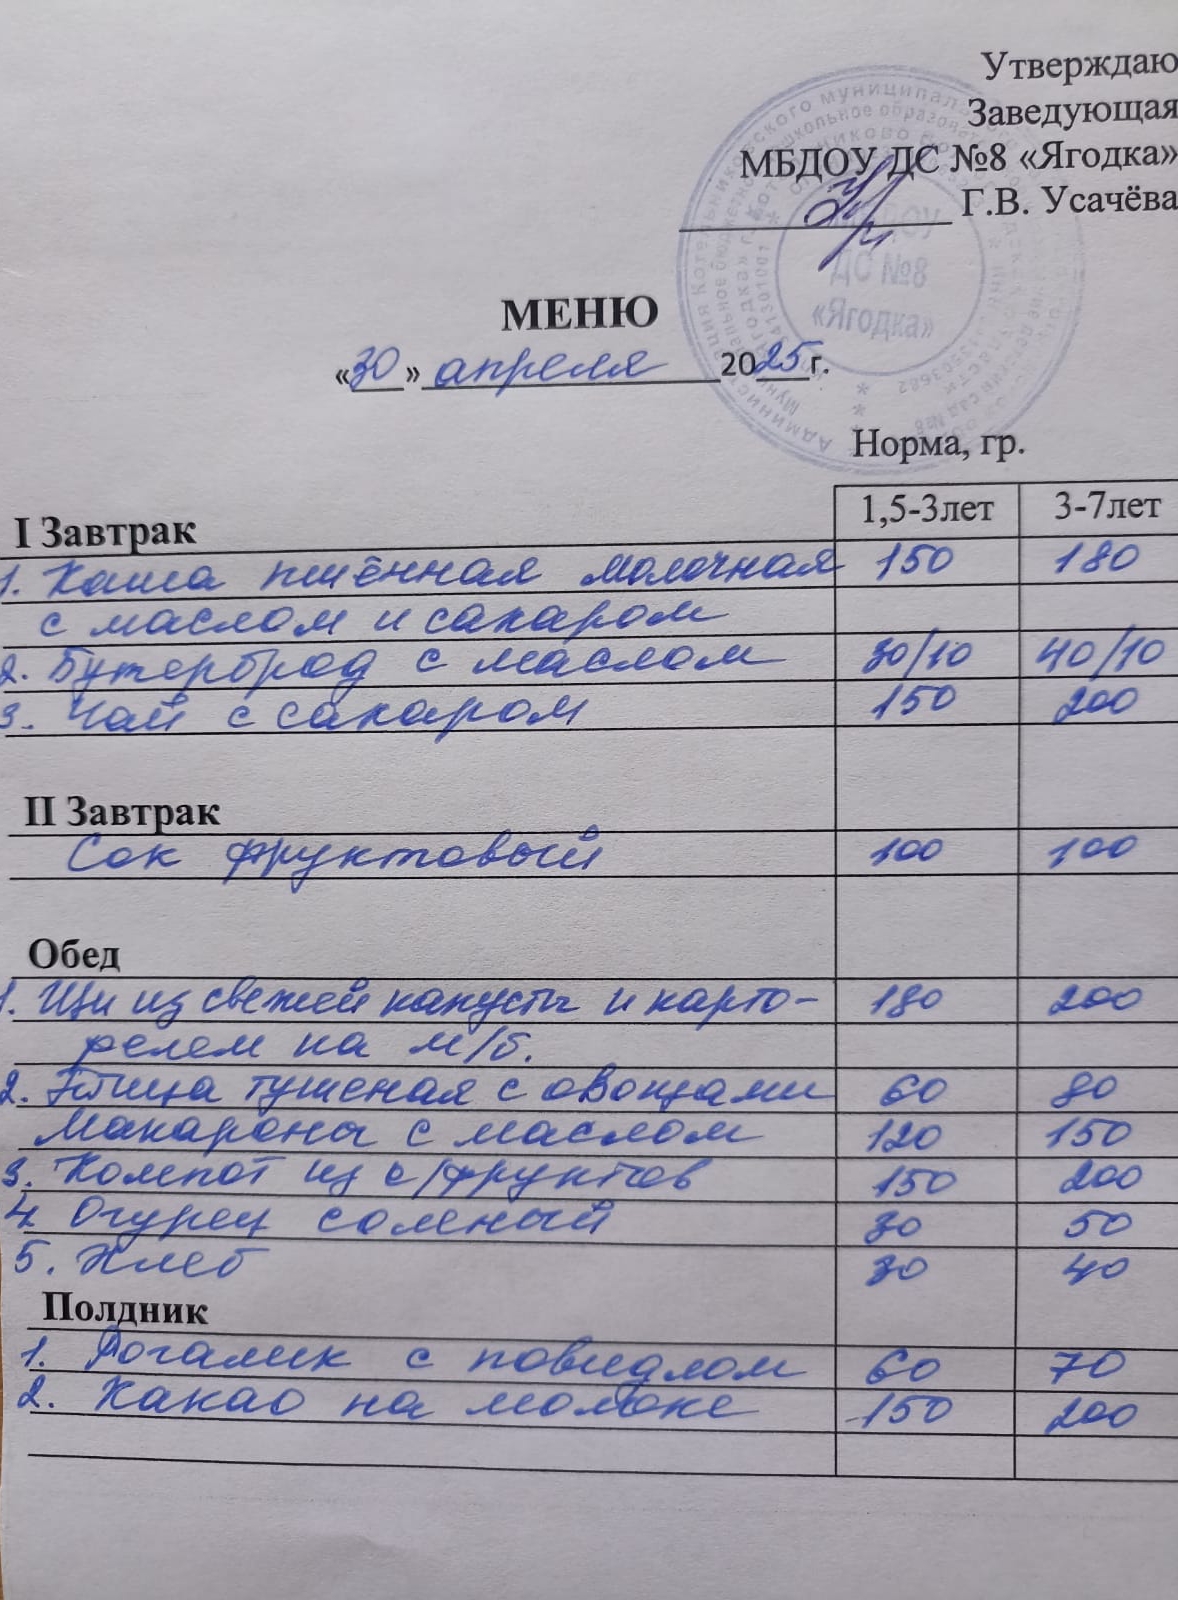 Утверждаю
Заведующая
МБДОУ ДС №8 «Ягодка»
Г.В. Усачёва
МБДОУ
ДС №8
«Ягодка»
МЕНЮ
«30» апреля 2025г.
Норма, гр.
I Завтрак 1,5-3лет 3-7лет
1. Каша пшённая молочная 150 180
с маслом и сахаром
2. Бутерброд с маслом 30/10 40/10
3. Чай с сахаром 150 200
II Завтрак
Сок фруктовый 100 100
Обед
1. Щи из свежей капусты и карто- 180 200
фелем на м/б.
2. Птица тушеная с овощами 60 80
Макароны с маслом 120 150
3. Компот из с/фруктов 150 200
4. Огурец соленый 30 50
5. Хлеб 30 40
Полдник
1. Рогалик с повидлом 60 70
2. Какао на молоке 150 200